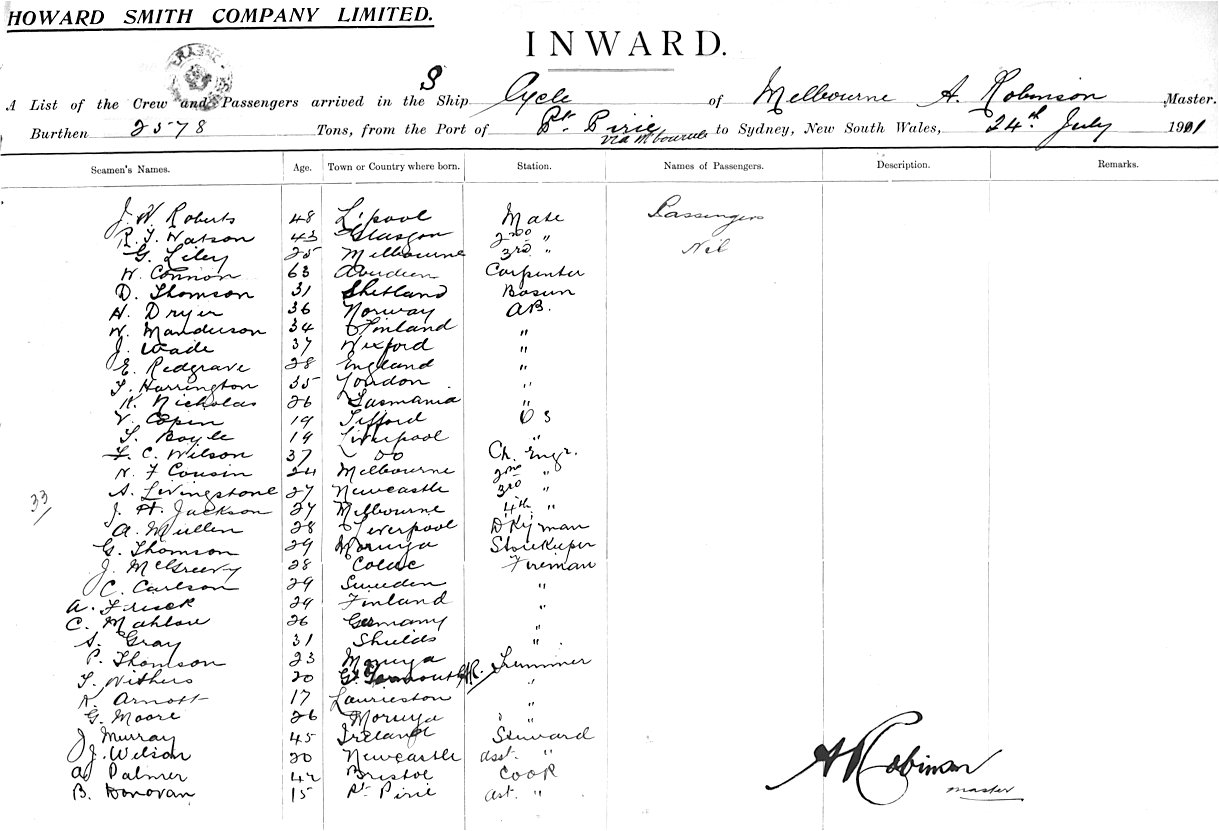 HOWARD SMITH COMPANY LIMITED.
INWARD.
A List of the Crew and Passengers arrived in the Ship S Cycle of Melbourne A. Robinson Master.
Burthen 2578 Tons, from the Port of Pt. Pirie via Mbourne to Sydney, New South Wales, 24th July 1901
Seamen's Names. Age. Town or Country where born. Station. Names of Passengers. Description. Remarks.
J. W. Roberts 48 L'pool Mate Passengers
R. J. Watson 43 Glasgow 2nd " Nil
G. Liley 25 Melbourne 3rd "
W. Connon 63 Aberdeen Carpenter
D. Thomson 31 Shetland Bosun
H. Dryer 36 Norway AB.
W. Manderson 34 Finland "
J. Wade 37 Wexford "
E. Redgrave 28 England "
T. Harrington 35 London "
K. Nicholas 26 Tasmania "
V. Copin 19 OS
T. Boyle 19 Liverpool "
F. C. Wilson 37 Do Ch. Engr.
N. F Cousin 24 Melbourne 2nd "
A. Livingstone 27 Newcastle 3rd "
33/
J. H. Jackson 27 Melbourne 4th "
A. Mullen 28 Liverpool Dkyman
G. Thomson 29 Moruya Storekeeper
J. McGreevy 28 Colac Fireman
C. Carlson 29 Sweden "
A. Frisck 29 Finland "
C. Mahlow 26 Germany "
A. Gray 31 Shields "
P. Thomson 23 Moruya Trimmer
T. Withers 20 "
A. Arnott 17 Laurieston "
G. Moore 26 Moruya "
J Murray 45 Ireland Steward
J. Wilson 20 Newcastle asst. "
A Palmer 42 Bristol Cook
B. Donovan 15 Pt. Pirie ast. "
A Robinson
master